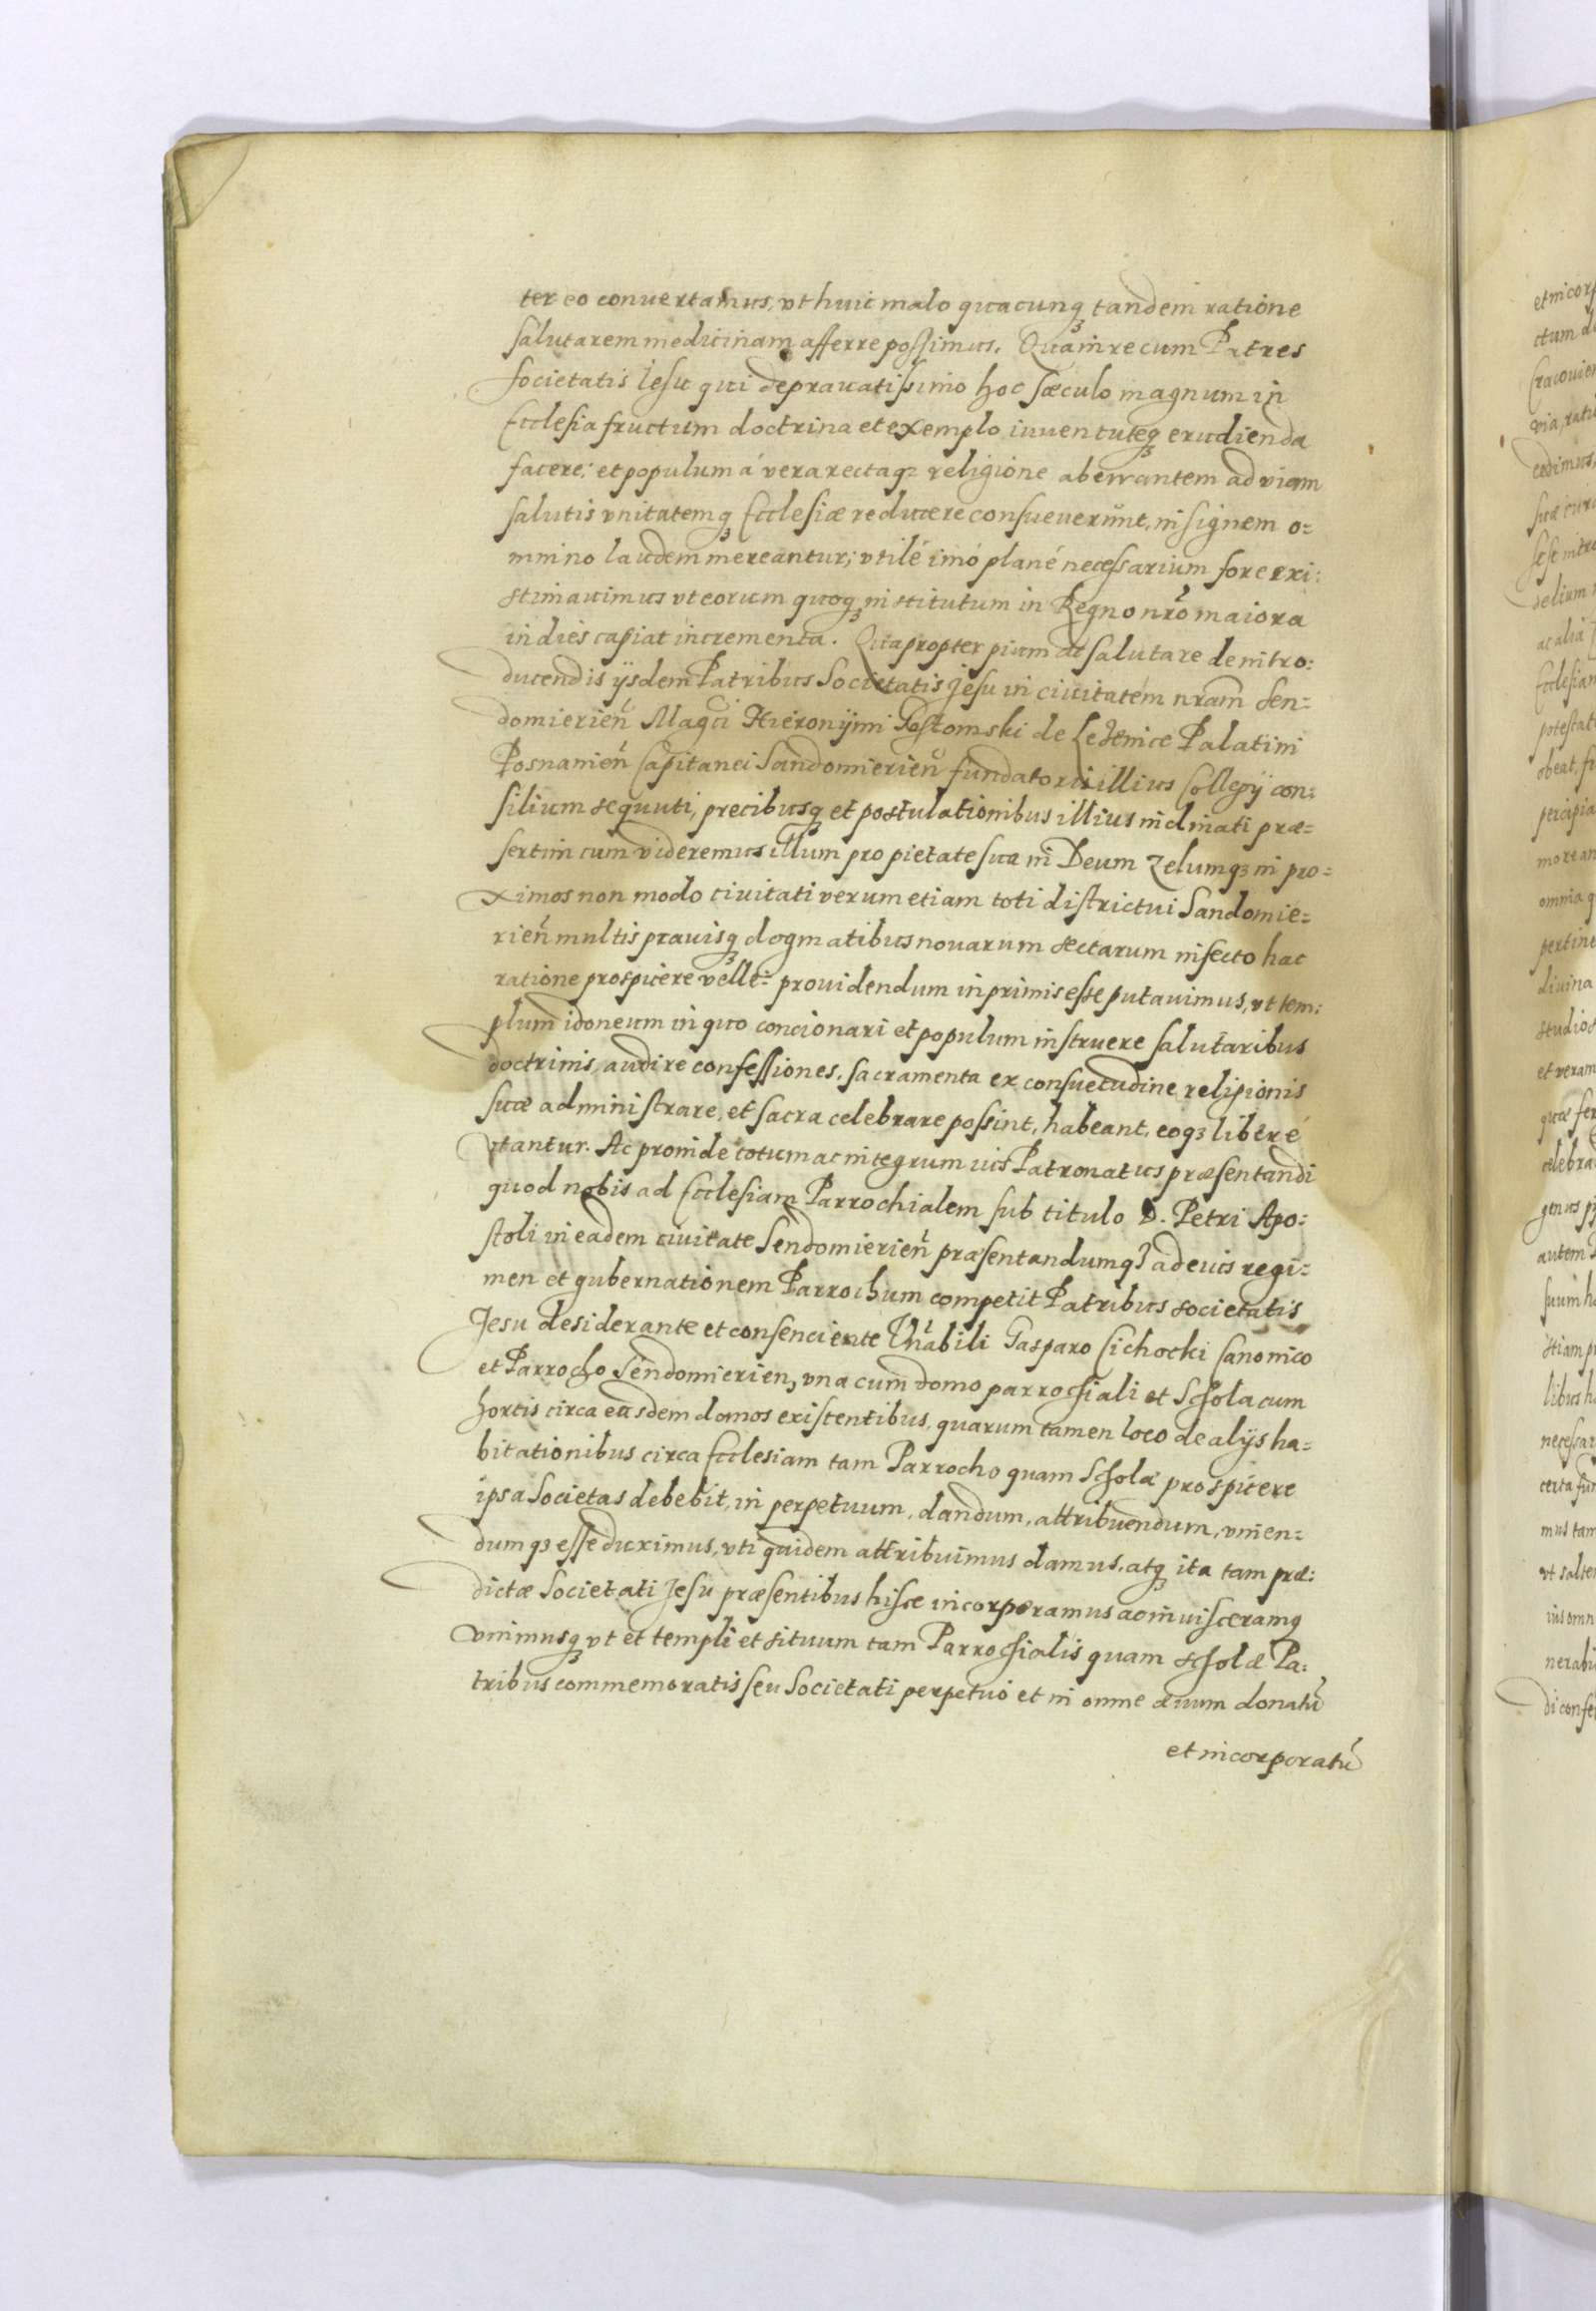 ter eo conuertamus, vt huic malo quacunq́ tandem ratione
salutarem medicinam afferre possimus. Quam re cum Patres
Societatis Iesu qui deprauatissimo hoc sæculo magnum in
Ecclesia fructum doctrina et exemplo iuuentuteq́ erudienda
facere: et populum á vera rectaqꝫ religione aberrantem ad viam
salutis vnitatemq́ Ecclesiæ reducere consueuerunt, insignem o=
mnino laudem mereantur; vtilé imó plané necessarium fore exi:
stimauimus vt eorum quoq́ institutum in Regno nr̃o maiora
in dies capiat incrementa. Quapropter pium ac salutare de intro:
ducendis ijsdem Patribus Societatis Jesu in ciuitatem nr̃am Sen=
domierien̄ Magci Hieronijmi Gostomski de Leżenice Palatini
Posnanien̄ Capitanei Sandomierien̄ fundatoris illius Collegij con:
silium sequuti, precibusq́ et postulationibus illius inclinati præ=
sertim cum videremus illum pro pietate sua in Deum zelumqꝫ in pro=
ximos non modo ciuitati verum etiam toti districtui Sandomie=
rien̄ multis prauisq́ dogmatibus nouarum sectarum infecto hac
ratione prospicere velle: prouidendum inprimis esse putauimus, vt tem:
plum idoneum in quo concionari et populum instruere salutaribus
doctrinis, audire confessiones, sacramenta ex consuetudine religionis
suæ administrare, et sacra celebrare possint, habeant, eoqꝫ liberé
vtantur. Ac proinde totum ac integrum ius Patronatus præsentandi
quod nobis ad Ecclesiam Parrochialem sub titulo D. Petri Apo:
stoli in eadem ciuitate Sendomierien̄ præsentandumqꝫ ad eius regi=
men et gubernationem Parrochum competit Patribus societatis
Jesu desiderante et consenciente Vn̄abili Gasparo Cichocki Canonico
et Parrocho Sendomierien, vna cum domo parrochiali et Schola cum
hortis circa easdem domos existentibus, quarum tamen loco de alijs ha=
bitationibus circa Ecclesiam tam Parrocho quam Scholæ prospicere
ipsa Societas debebit, in perpetuum, dandum, attribuendum, vnien=
dumqꝫ esse duximus, vti quidem attribuimus damus, atq́ ita tam præ:
dictæ Societati Jesu præsentibus hisce incorporamus ac inuisceramq́
vnimusq́ vt et templi et situum tam Parrochialis quam scholæ Pa:
tribus commemoratis seu Societati perpetuó et in omne æuum donatū
et incorporatū